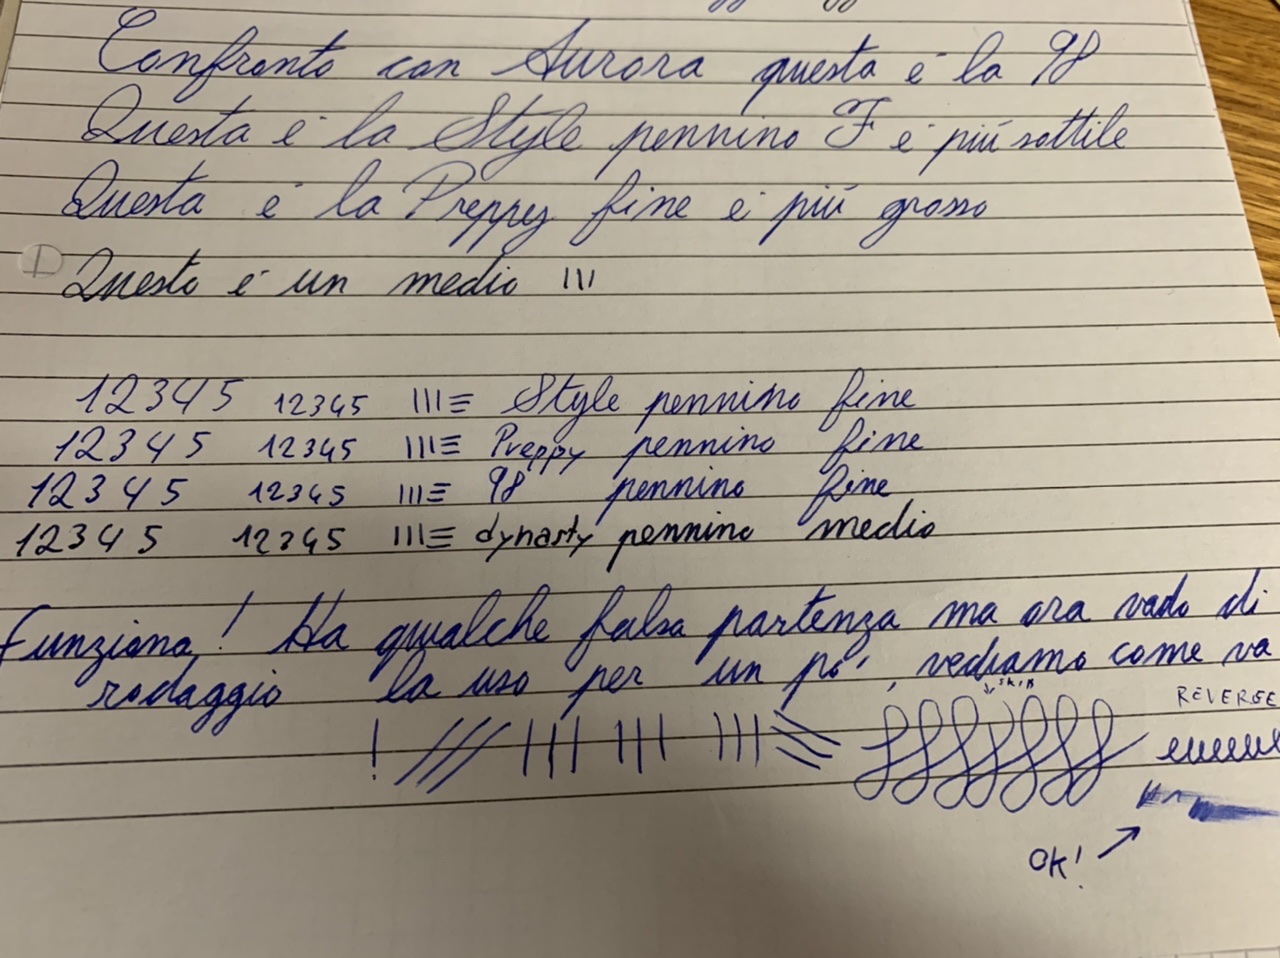 Confronto con Aurora questa è la 98
Questa è la Style pennino F è più sottile
Questa è la Preppy fine è più grosso
Questo è un medio III
12345 12345 III≡ Style pennino fine
12345 12345 III≡ Preppy pennino fine
12345 12345 III≡ 98 pennino fine
12345 12345 III≡ dynasty pennino medio
Funziona! Ha qualche falsa partenza ma ora vado di
rodaggio la uso per un pò, vediamo come va
skip
REVERSE
OK!